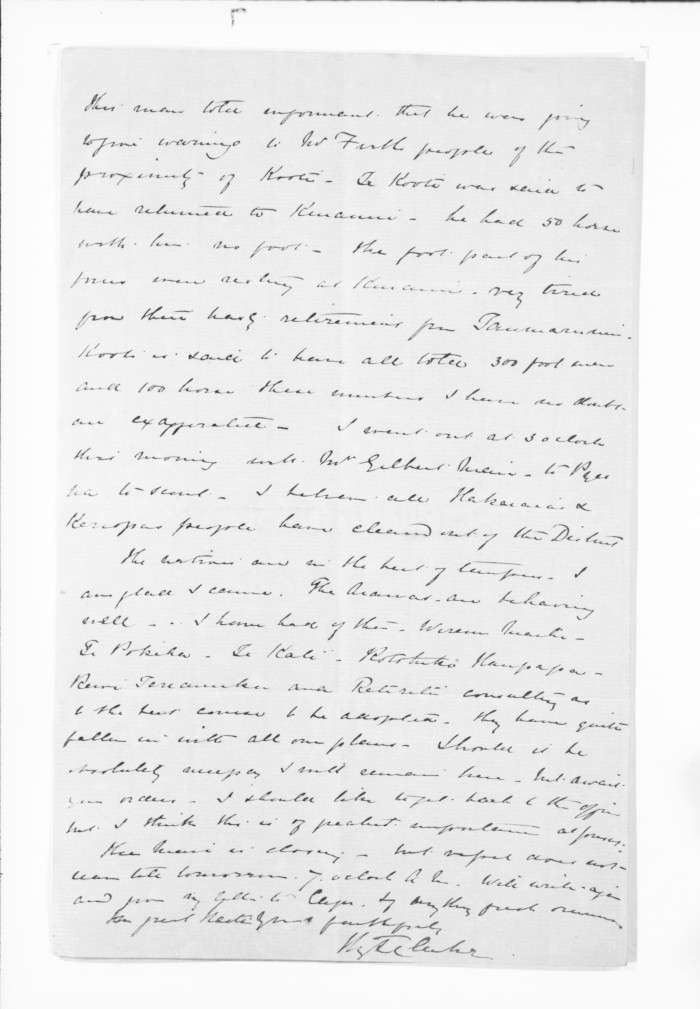 This man told informant that he was going
to give warning to Mr Firth's people of the
proximity of Kooti - Te Kooti was said to
have returned to Kuranui - he had 50 horse
with him no foot - the foot part of his
force were resting at Kuranui - very tired
from their hasty retirement from
Kooti is said to have all told 300 foot men
and 100 horse these numbers I have no doubt
are exaggerated - I went out at 3 oclock
this morning with Mr Gilbert Mair - to Pyes
Pa to scout - I believe all Hakaraia's &
Kereopa's people have cleared out of the District
The natives are in the best of tempers - I
am glad I came. The Arawas are behaving
well - I have had of them -
Te Pokiha - Te Kati - Kaupapa -
and Retireti consulting as
to the best course to be adopted - they have quite
fallen in with all our plans - Should it be
absolutely necessary I will remain here - but await
your orders - I should like to get back to the office
but I think this is of greatest importance at present.
The Mail is closing - but does not
leave till tomorrow 7 oclock A M. Will write again
and from my letter to if anything fresh occurs
In great haste Yours faithfully
H T Clarke